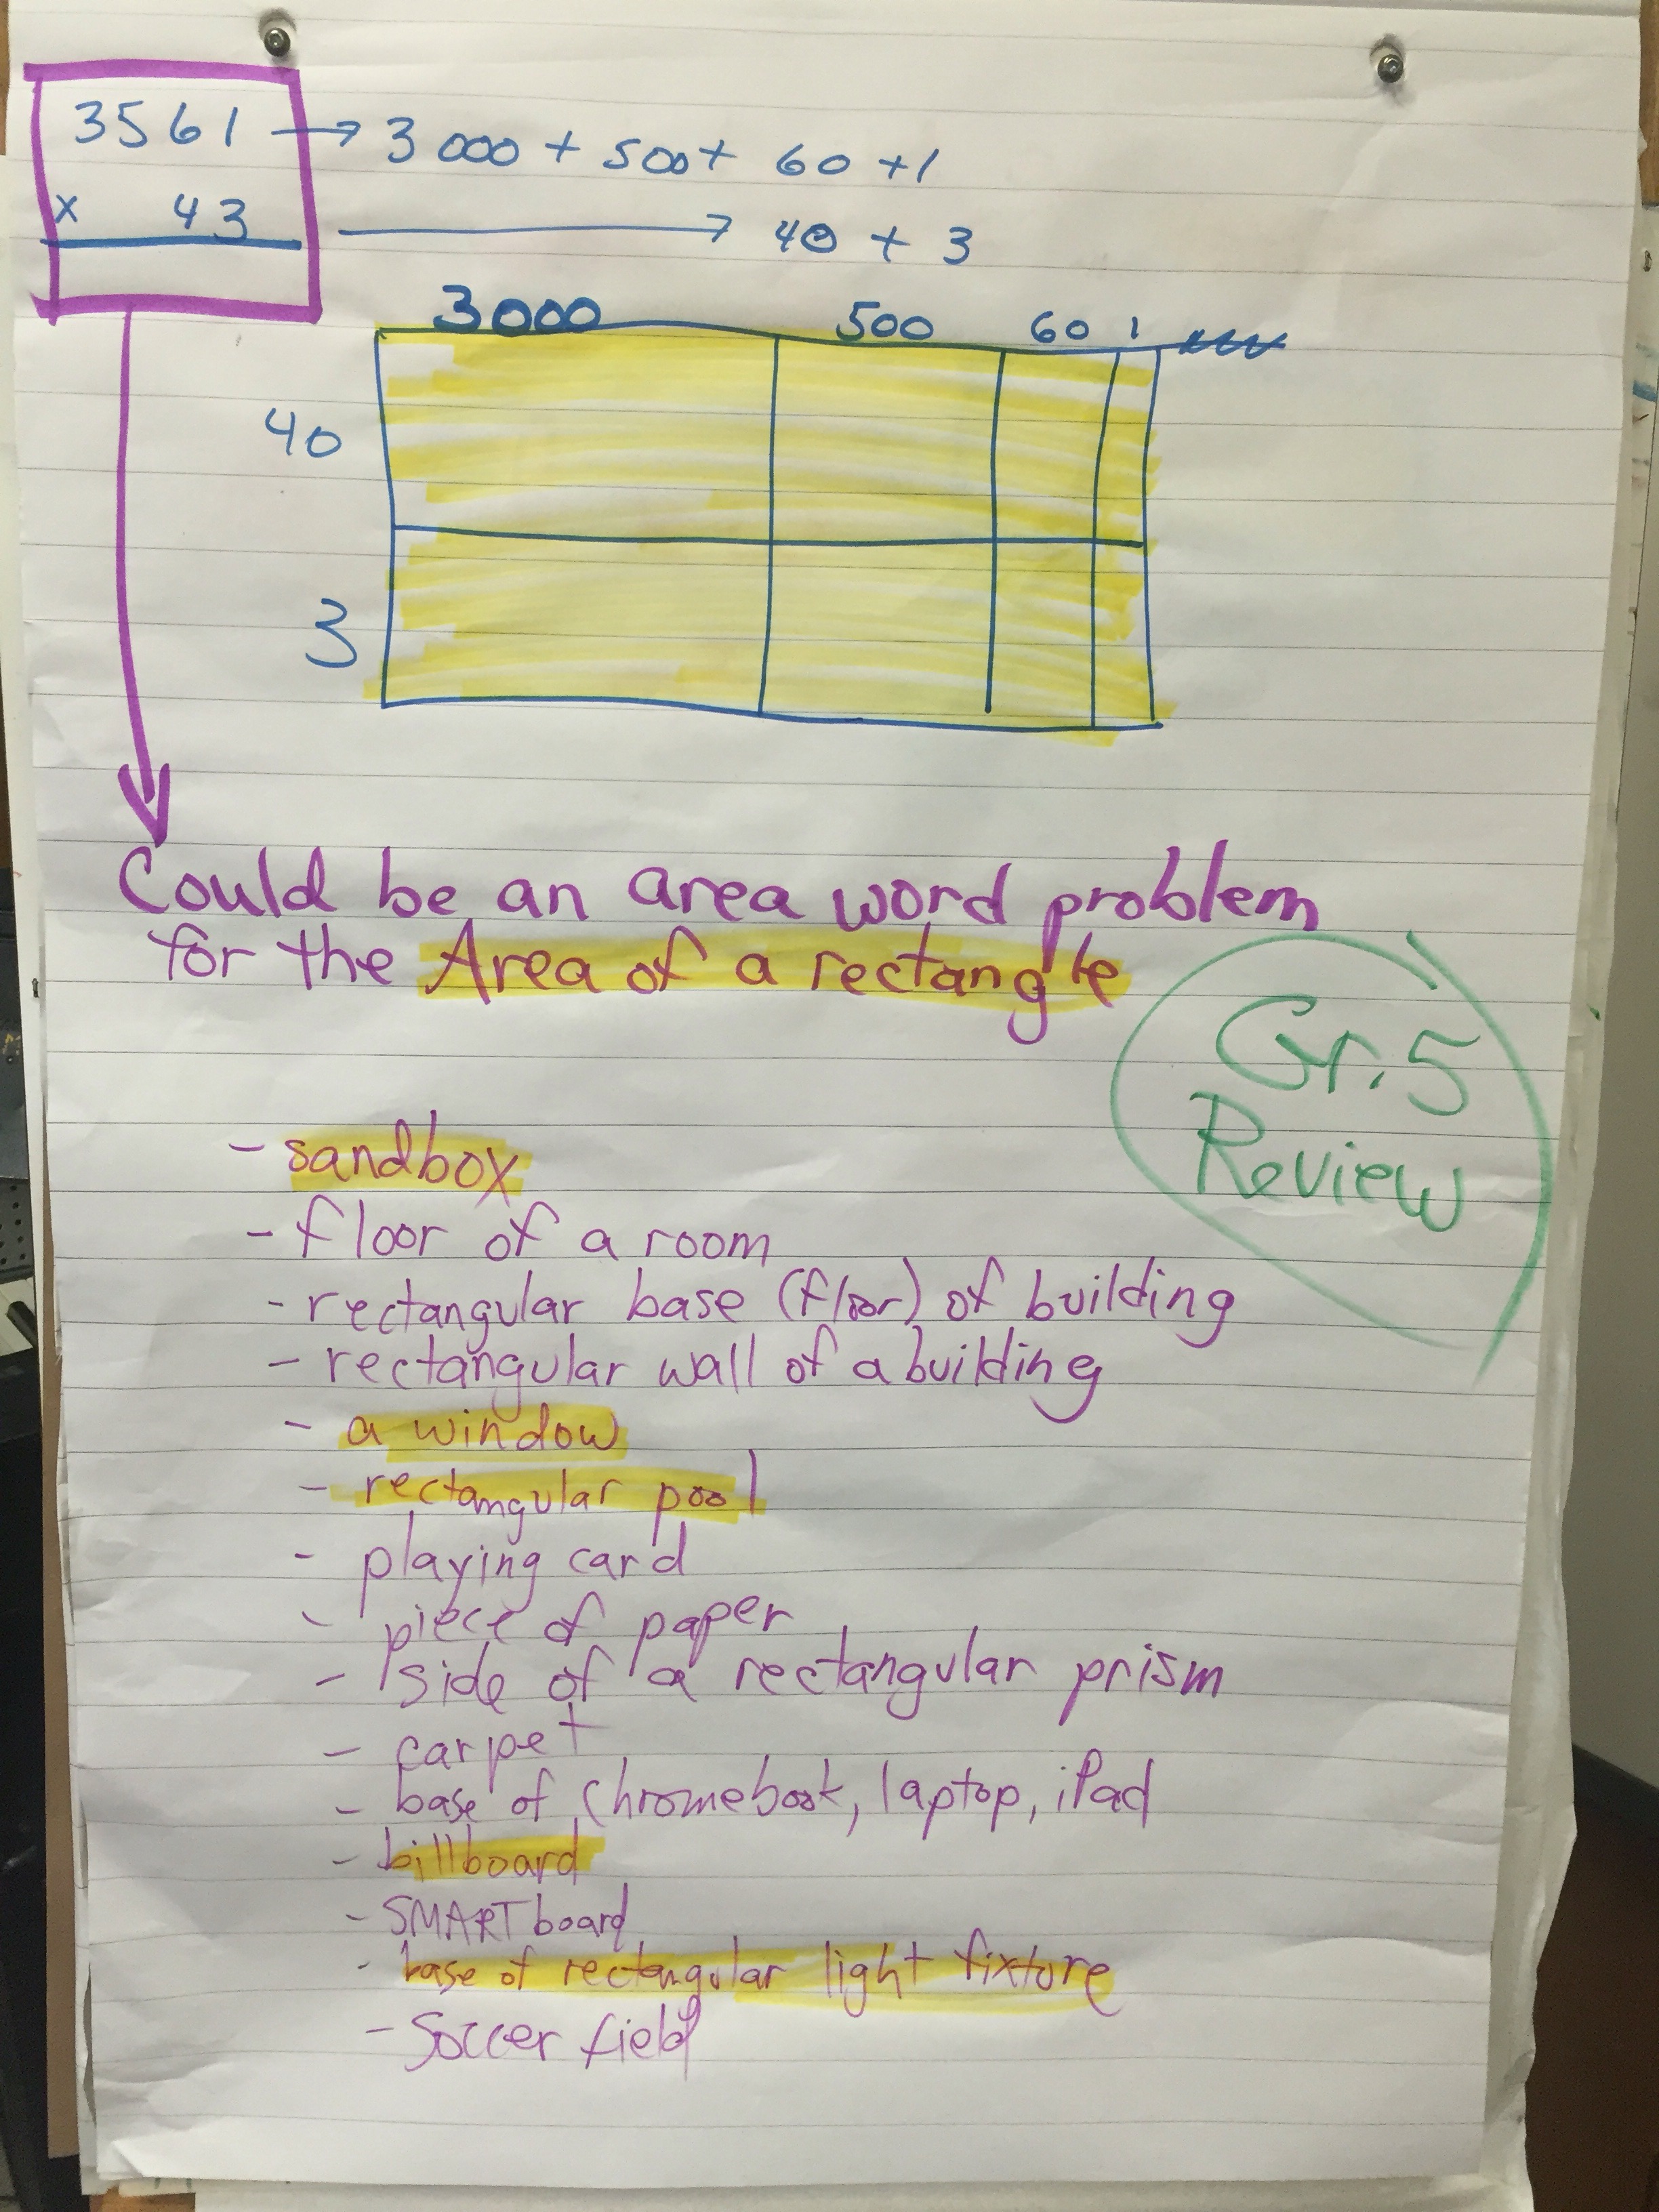 3561 → 3000 + 500 + 60 + 1
x 43 → 40 + 3
3000 500 60 1
40
3
Could be an area word problem
for the Area of a rectangle
Gr. 5
Review
- sandbox
- floor of a room
- rectangular base (floor) of building
- rectangular wall of a building
- a window
- rectangular pool
- playing card
- piece of paper
- side of a rectangular prism
- carpet
- base of Chromebook, laptop, iPad
- billboard
- SMART board
- base of rectangular light fixture
- Soccer field